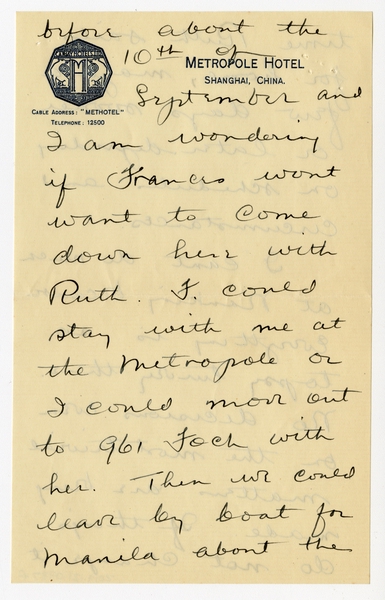 before about the
10th of
METROPOLE HOTEL
SHANGHAI, CHINA.
CABLE ADDRESS: "METHOTEL"
TELEPHONE: 12500
September and
I am wondering
if Frances wont
want to come
down here with
Ruth. F. could
stay with me at
the Metropole or
I could move out
to 961 Foch with
her. Then we could
leave by boat for
Manila about the